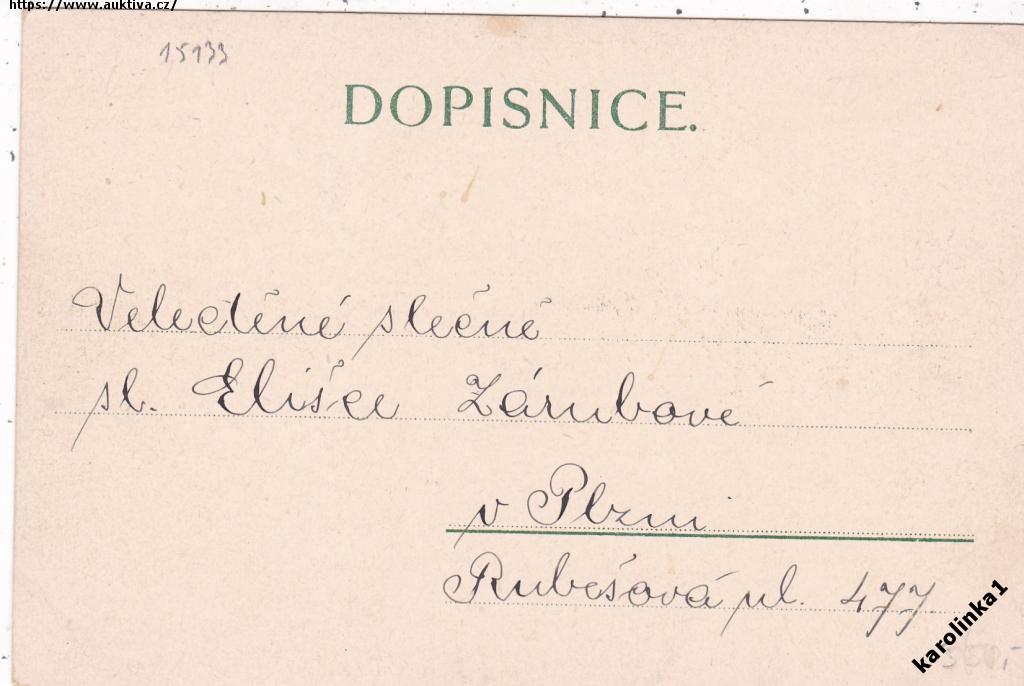 https://www.auktiva.cz/
15133
DOPISNICE.
Velectěné slečně
sl. Elišce Zárubově
v Plzni
Rubešová ul. 477.
karolinka1